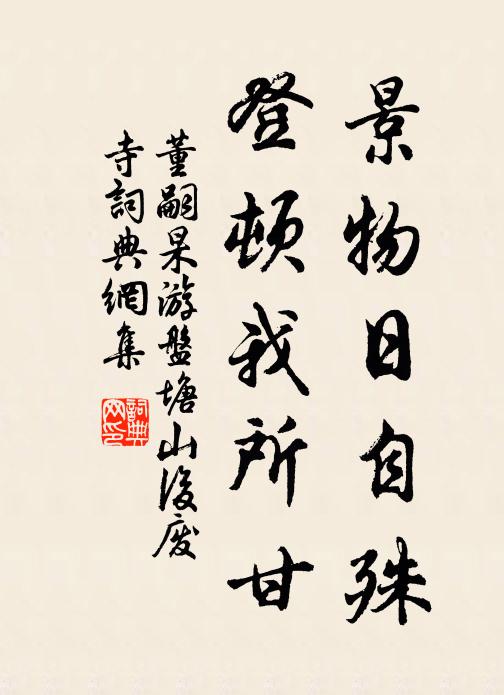 景物日自殊
登頓我所甘
董嗣杲游盤塘山後廢
寺詞典網集
詞典網印